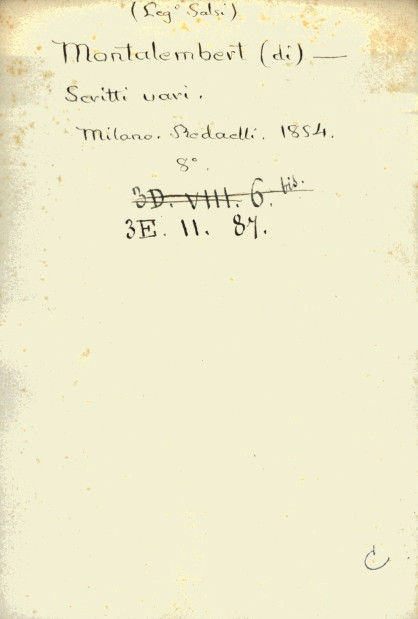 (Leg° Salsi)
Montalembert (di) —
Scritti vari.
Milano. Redaelli. 1854.
8°.
3D. VIII. 6. bis.
3E. II. 87.
C